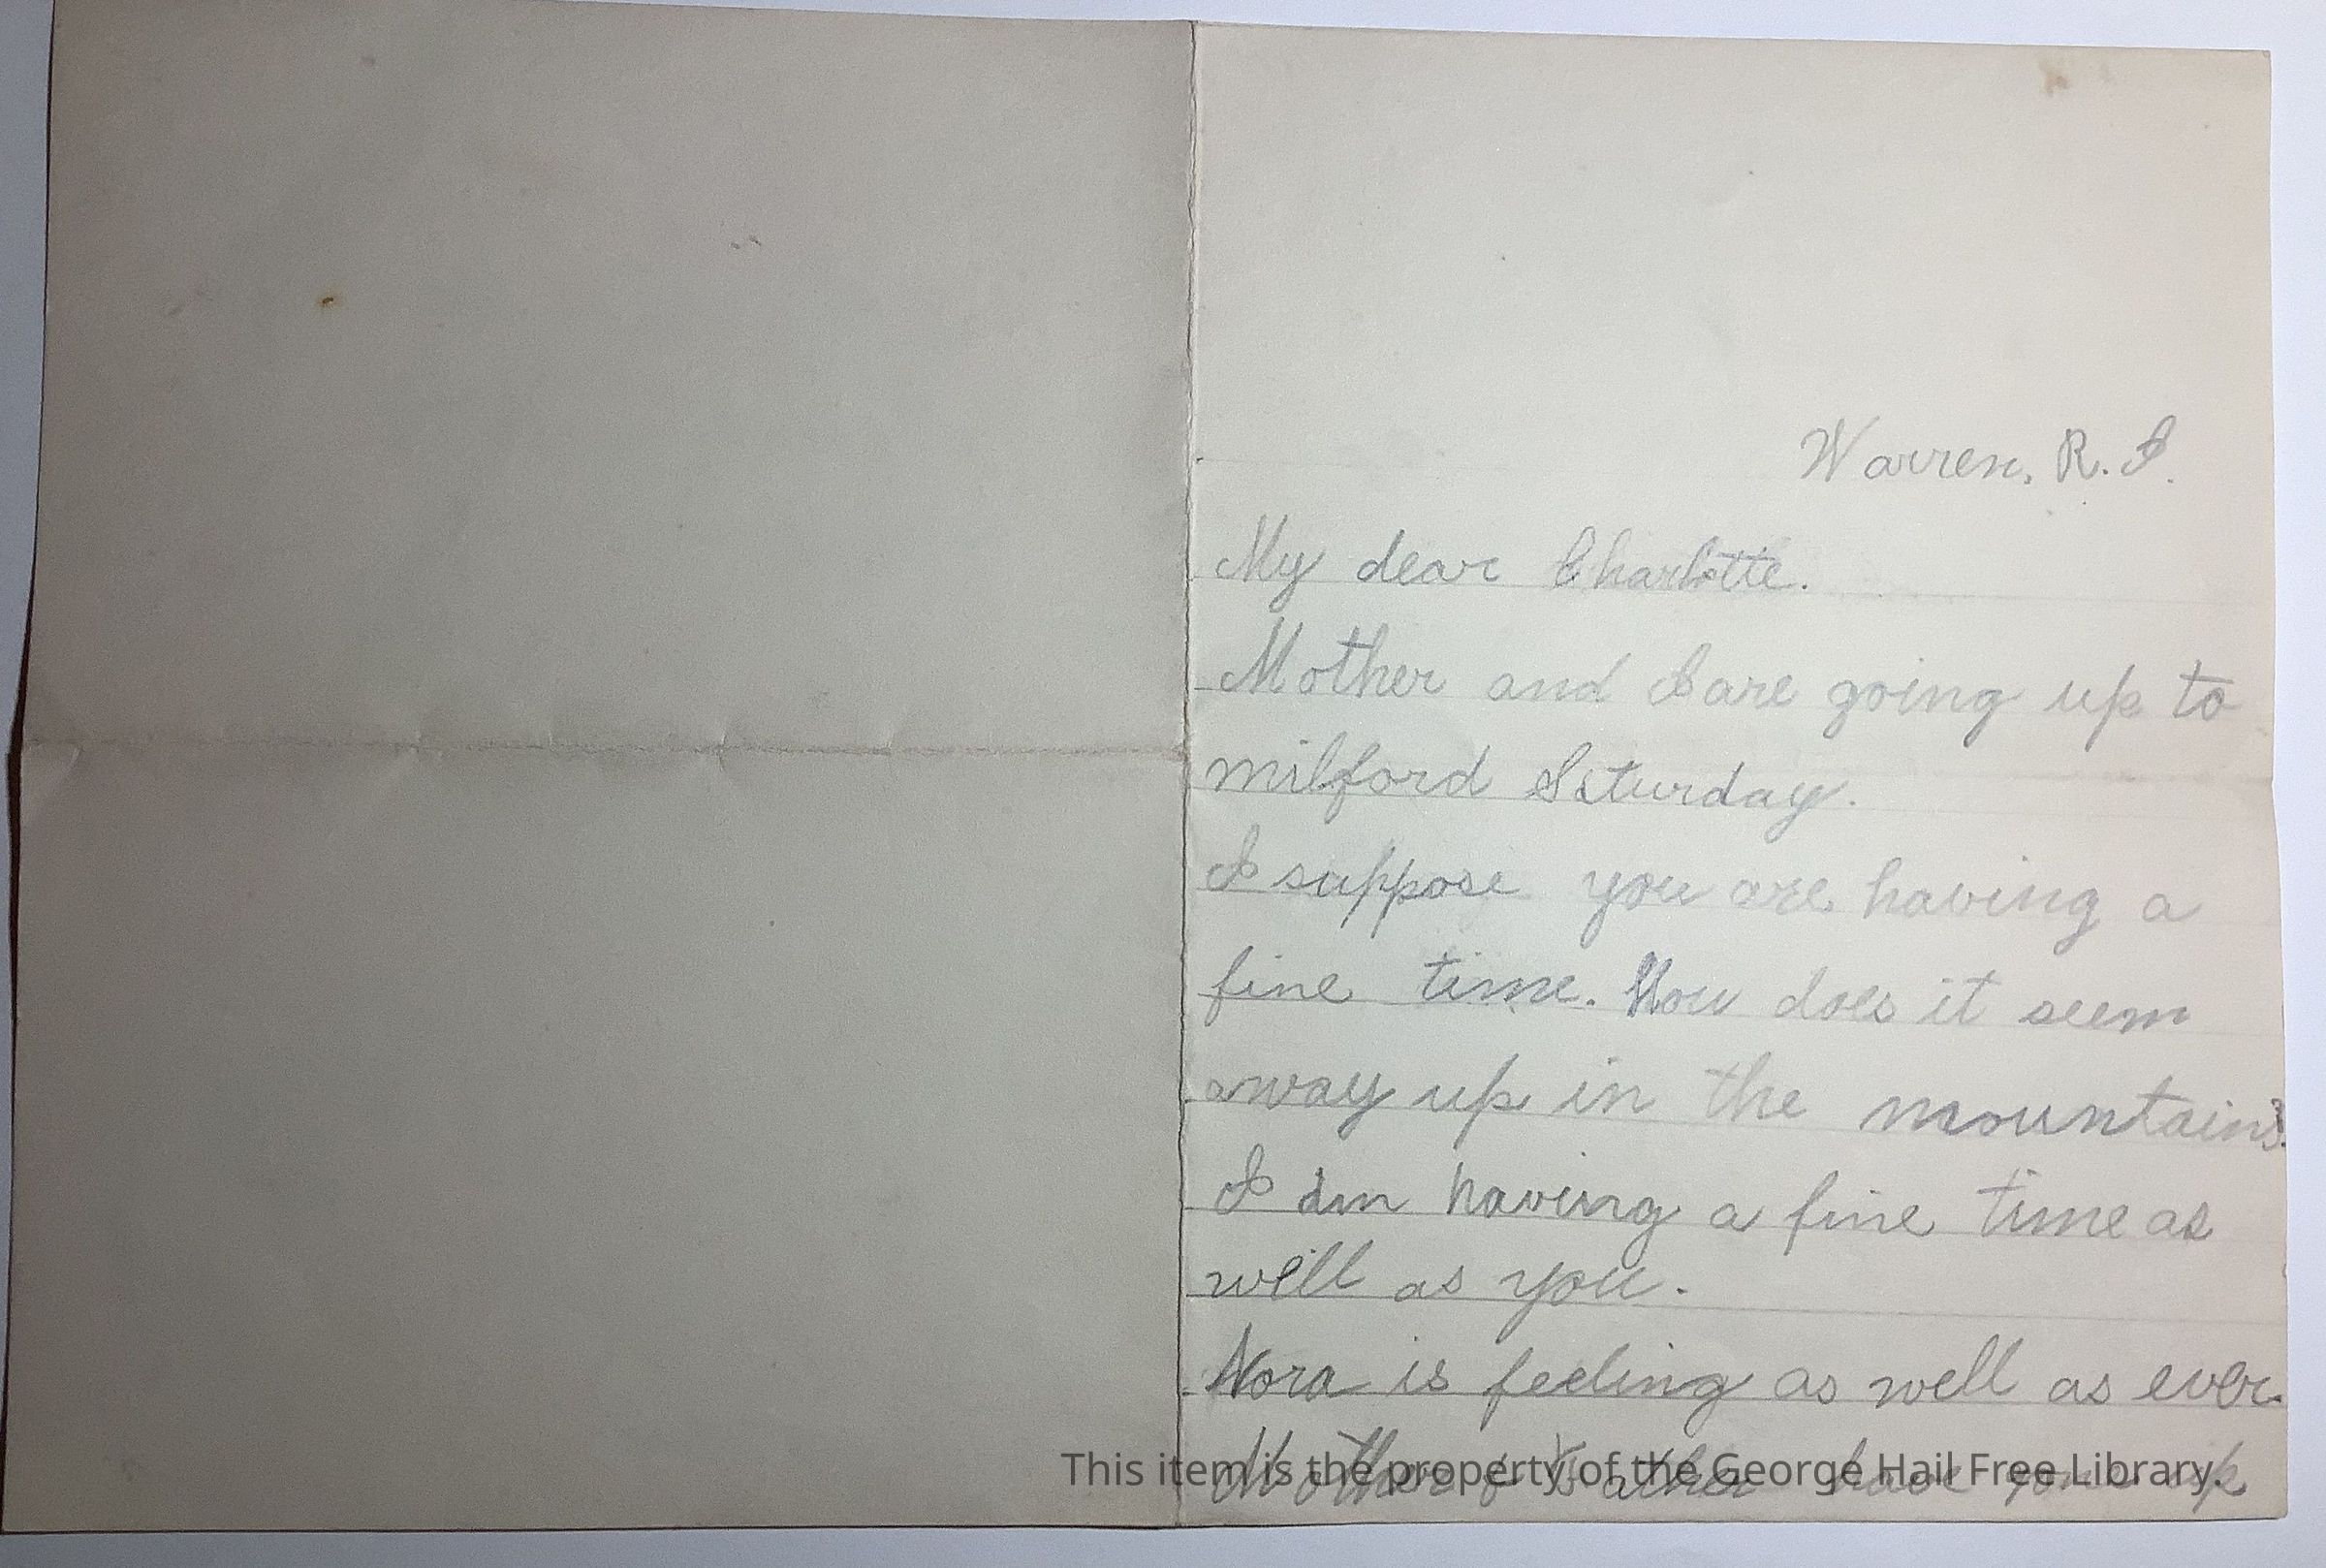 Warren, R. I.
My dear Charlotte.
Mother and I are going up to
milford Saturday.
I suppose you are having a
fine time. How does it seem
away up in the mountains.
I am having a fine time as
well as you.
Nora is feeling as well as ever.
Mother & Father have gone up
This item is the property of the George Hail Free Library.